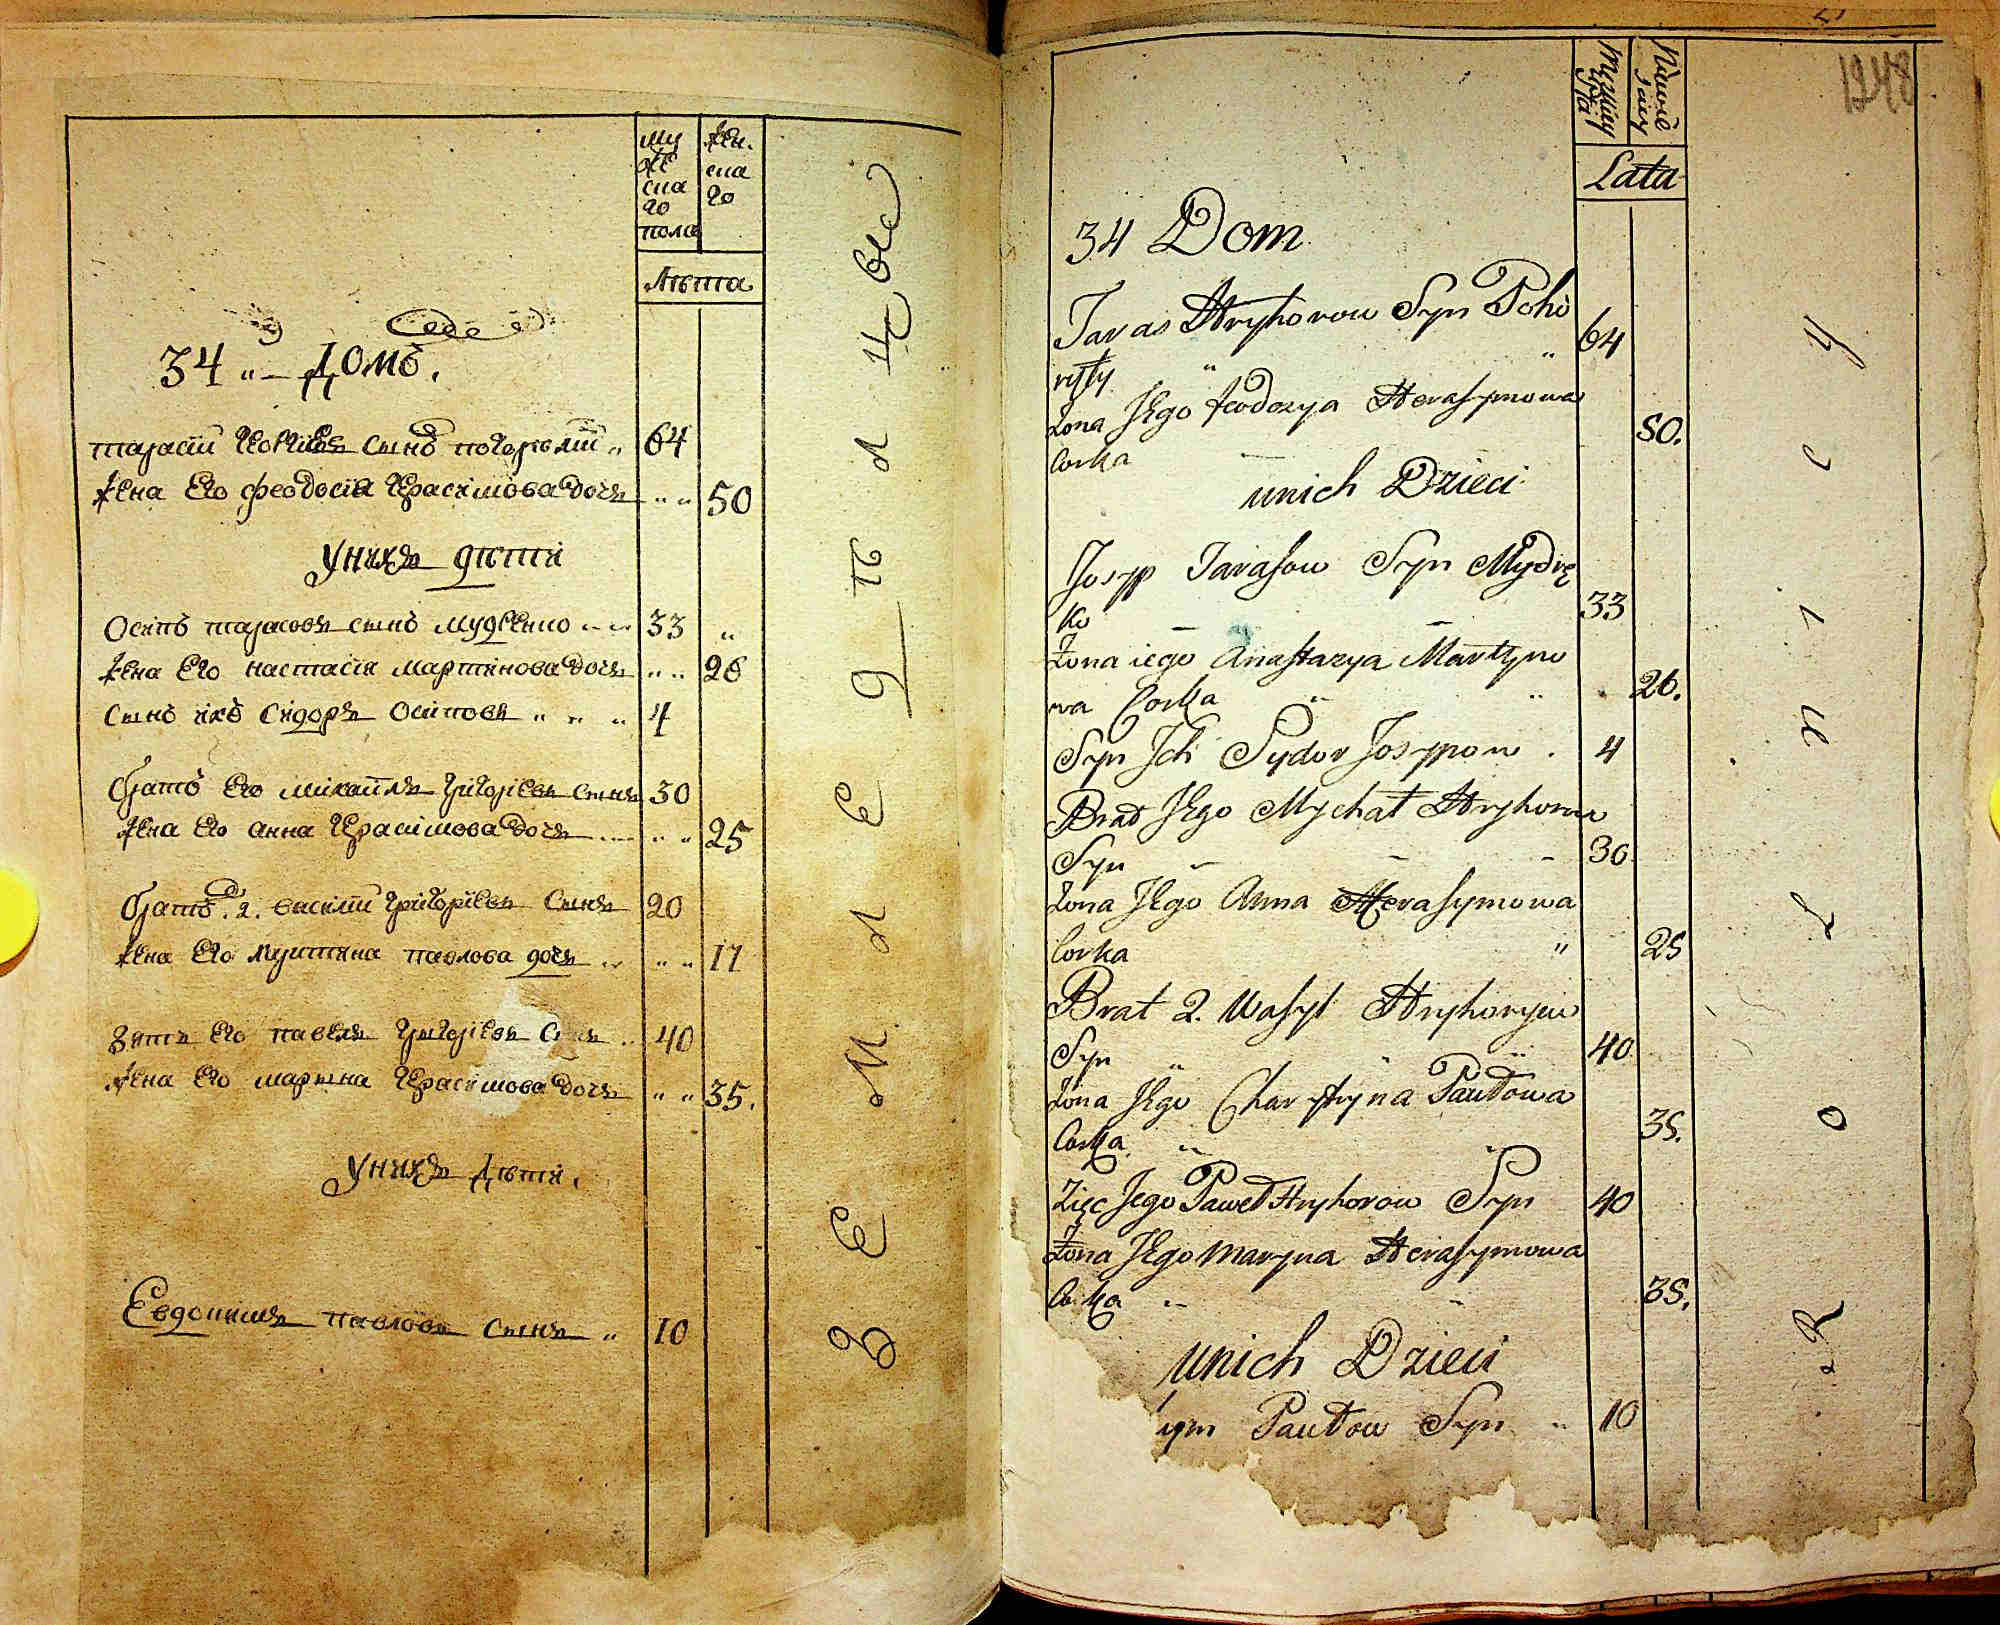 му
же
ска
го
полa
жен.
ска
го
лѣта
34 „ — Домъ.
тарасіи сынъ погорѣлїи „ 64
жена его феодосія герасимова дочь „ „ 50
У нихъ дѣти
Осипъ тарасовъ сынъ мудренко „ „ 33 „
жена его настасія мартинова дочь „ „ 26
сынъ ихъ сидоръ осиповъ „ „ „ 4
братъ его михаилъ григорїевъ сынъ 30
жена его анна герасимова дочь „ „ 25
братъ. 2. василїи григорїевъ сынъ 20
жена его павлова дочь „ „ 17
зять его павелъ григорїевъ „ 40
жена его марина герасимова дочь „ „ 35.
У нихъ Дѣти.
Евдокимъ павловъ сынъ „ 10
З Е М Л Е Д Ѣ Л Ц Ы
1248
Lata
34 Dom
Taras Hryhorow Syn Poho
ryły „ „ 64
Żona Jego Feodozya Herasymowa
Corka — 50.
unich Dzieci
Josyp Tarasow Syn Mydrę
ko — — 33
Żona iego Anastazya Martyno
wa Corka „ „ 26.
Syn Ich Sydor Josypow . 4
Brat Jego Mychał Hryhorow
Syn — — — 30
Żona Jego Anna Herasymowa
Corka „ 25
Brat 2. Wasyl Hryhoryew
Syn „ „ „ 40
Żona Jego Charytyna Pawłowa
Corka „ „ 35.
Zięc Jego Paweł Hryhorow Syn 40
Żona Jego Maryna Herasymowa
Corka „ „ 35.
unich Dzieci
ym Pawłow Syn „ 10
R o l n i c y